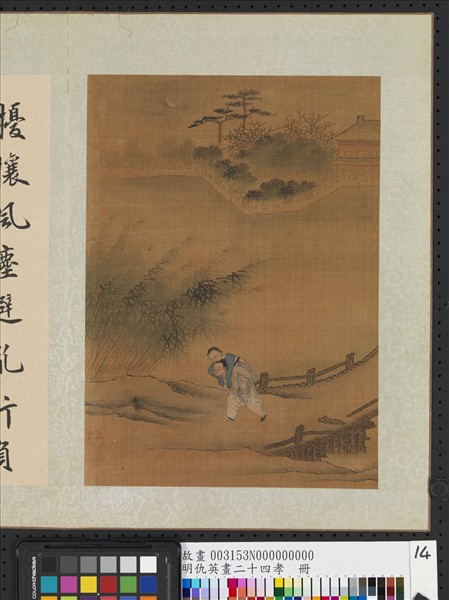 擾攘風塵避亂行須
故畫 003153N000000000
明仇英畫二十四孝 冊
14
colorchecker